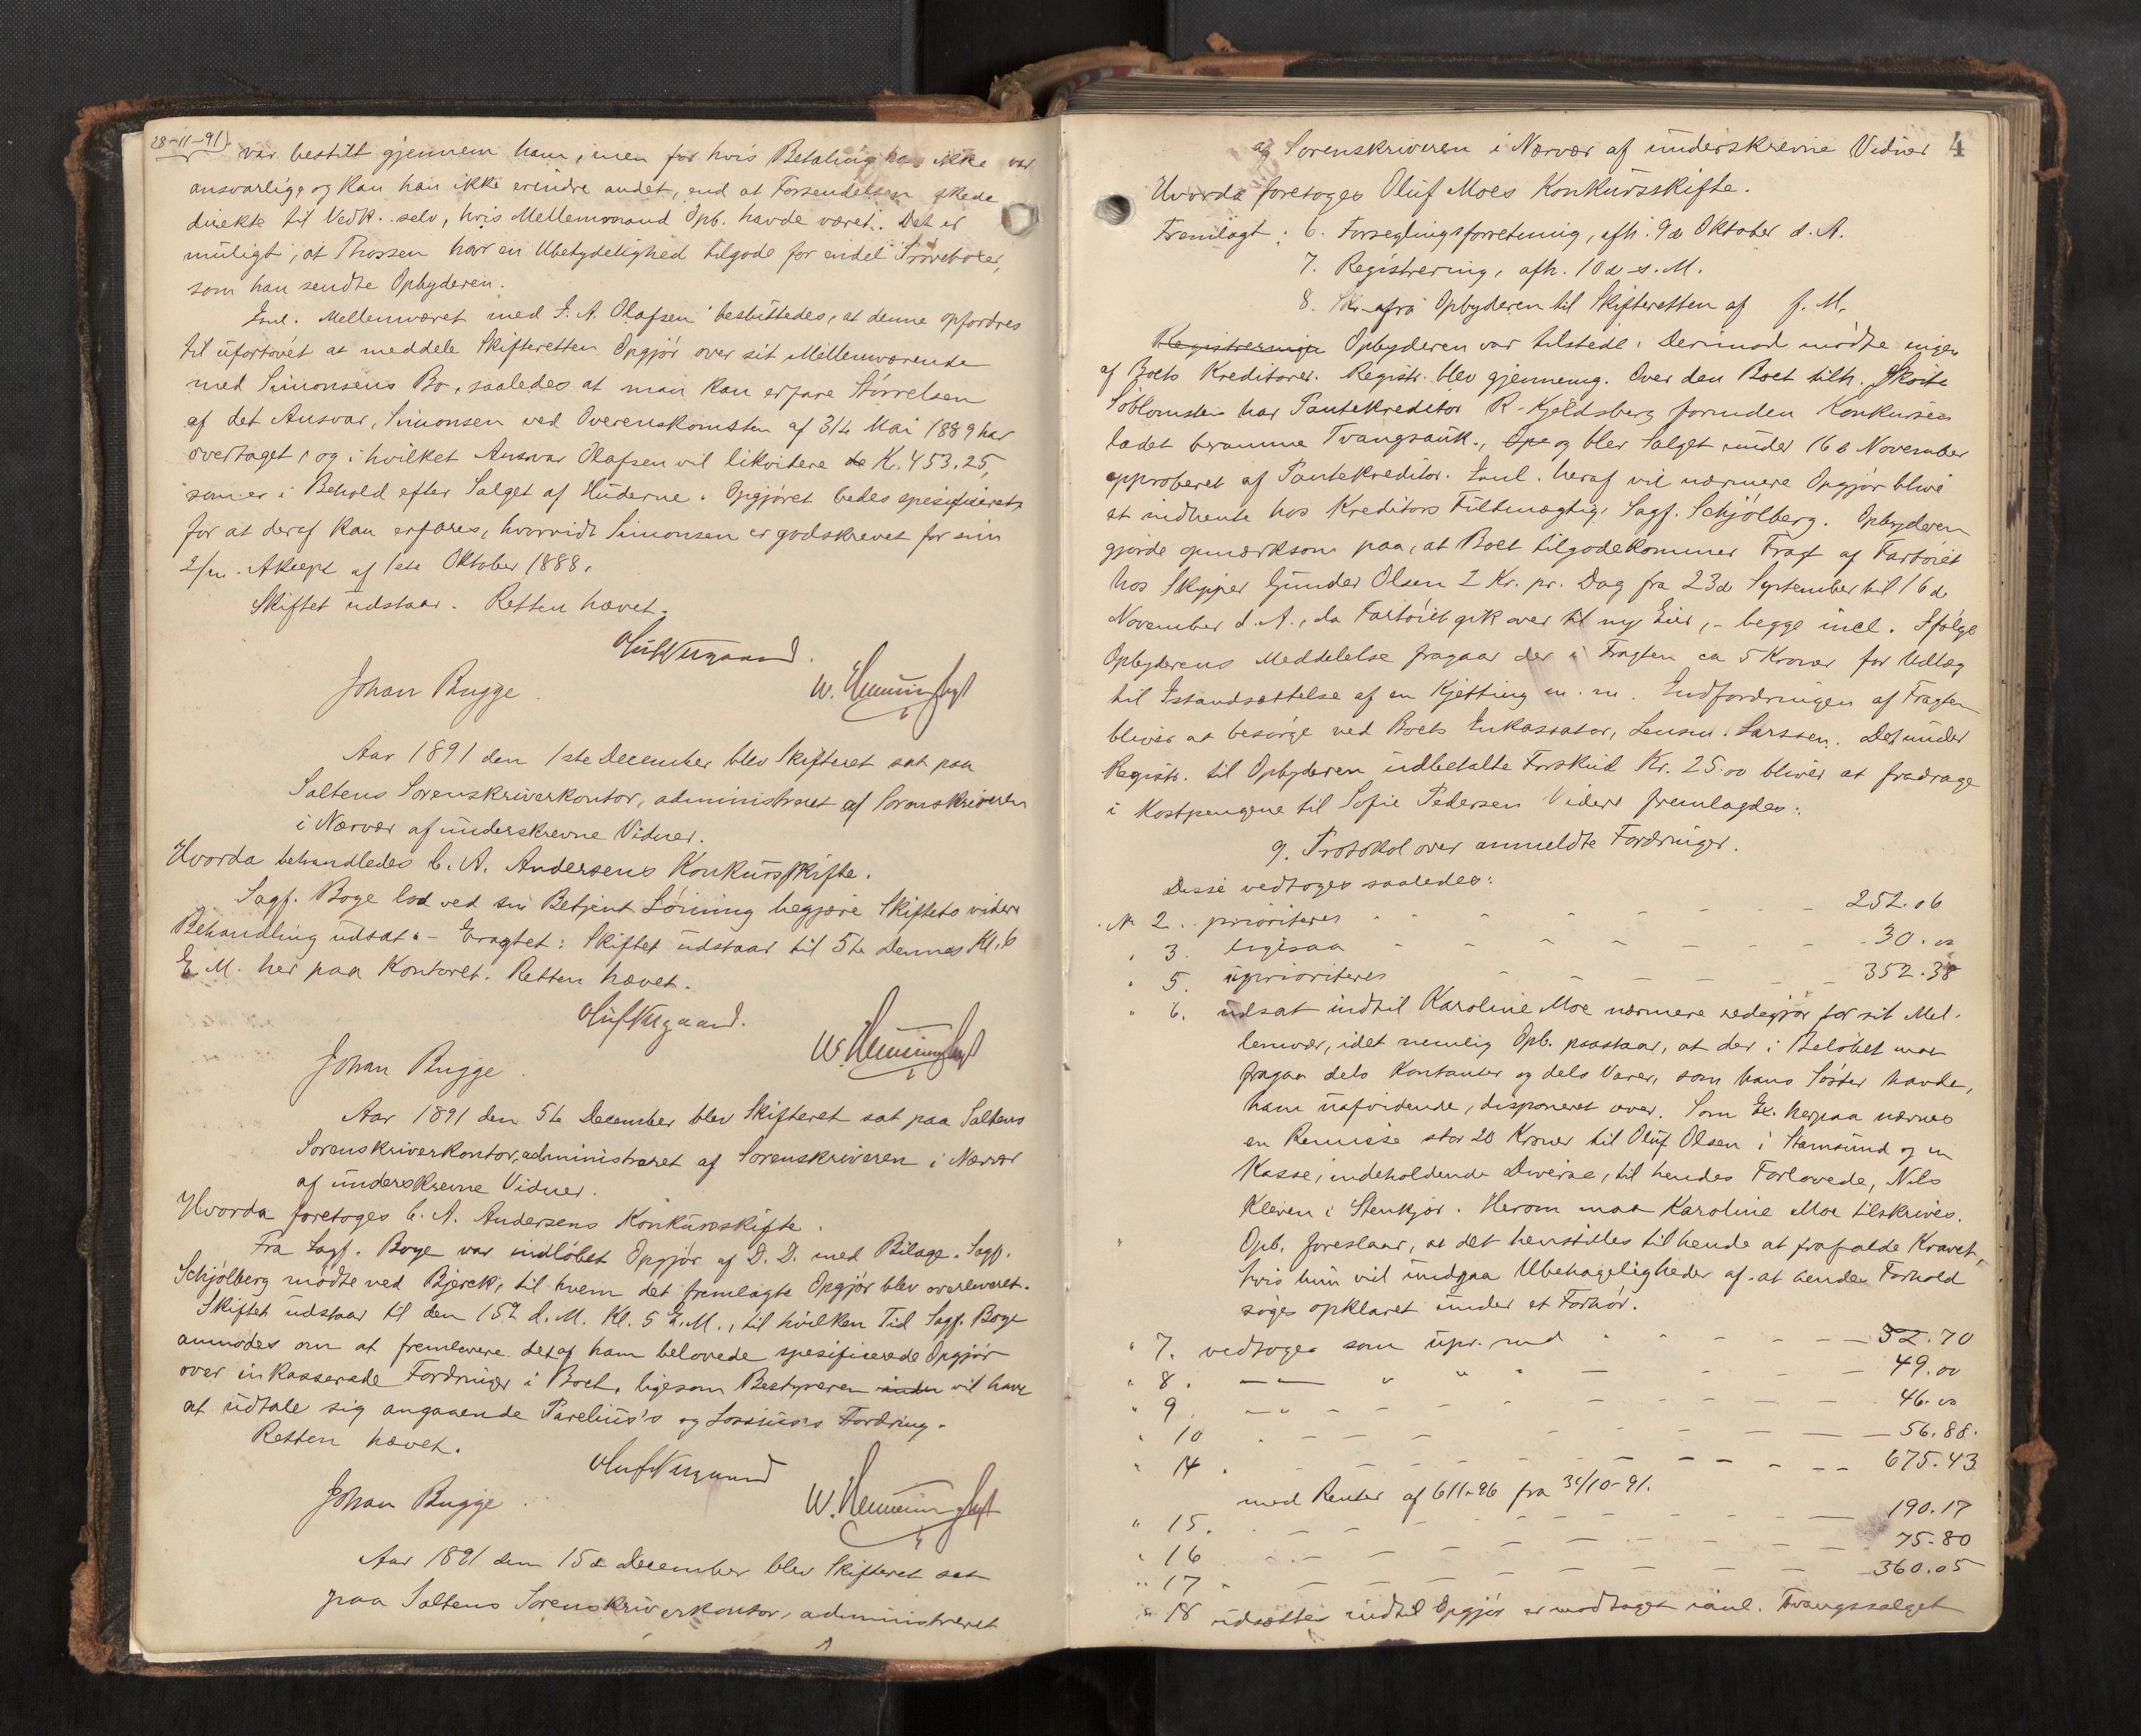 28-11-91).
var bestilt gjennem ham, men for hvis Betaling han ikke var
ansvarlig, og kan han ikke erindre andet, end at Forsendelsen skede
direkte til Vedk. selv, hvis Mellemmand Opb. havde været. Det er
muligt, at Thossen har en Ubetydelighed tilgode for endel Prøveboxer,
som han sendte Opbyderen.
Anl. Mellemværet med J. A. Olafsen besluttedes, at denne opfordres
til ufortøvet at meddele Skifteretten Opgjør over sit Mellemværende
med Simonsens Bo, saaledes at man kan erfare Størrelsen
af det Ansvar, Simonsen ved Overenskomsten af 31te Mai 1889 har
overtaget, og i hvilket Ansvar Olafsen vil likvidere de K. 453.25,
som er i Behold efter Salget af Huderne. Opgjøret bedes spesificeret,
for at deraf kan erfares, hvorvidt Simonsen er godskrevet for sin
2/m. Akcept af 1ste Oktober 1888.
Skiftet udstaar. Retten hævet.
Johan Bugge.
Aar 1891 den 1ste December blev Skifteret sat paa
Saltens Sorenskriverkontor, administreret af Sorenskriveren
i Nærvær af underskrevne Vidner.
Hvorda behandledes C. A. Andersens Konkursskifte.
Sagf. Boye lod ved sin Betjent Lørning begjære Skiftets videre
Behandling udsat. – Eragtet: Skiftet udstaar til 5te Dennes Kl. 6
E. M. her paa Kontoret. Retten hævet.
Johan Bugge.
Aar 1891 den 5te December blev Skifteret sat paa Saltens
Sorenskriverkontor, administreret af Sorenskriveren i Nærvær
af underskrevne Vidner.
Hvorda foretoges C. A. Andersens Konkursskifte.
Fra Sagf. Boye var indløbet Opgjør af D. D. med Bilage. Sagf.
Schjølberg mødte ved Bjerck, til hvem det fremlagte Opgjør blev overleveret.
Skiftet udstaar til den 15de d. M. Kl. 5 E. M., til hvilken Tid Sagf. Boye
anmodes om at fremlevere det af ham belovede spesificerede Opgjør
over inkasserede Fordringer i Boet, ligesom Bestyreren inden vil have
at udtale sig angaaende Parelius's og Lossius's Fordring.
Retten hævet.
Johan Bugge
Aar 1891 den 15de December blev Skifteret sat
paa Saltens Sorenskriverkontor, administreret
4
af Sorenskriveren i Nærvær af underskrevne Vidner
Hvorda foretoges Oluf Moes Konkursskifte.
Fremlagt: 6. Forseglingsforretning, afh. 9de Oktober d. A.
7. Registrering, afh. 10de s. M.
8. Skr. fra Opbyderen til Skifteretten af f. M.
Registreringen Opbyderen var tilstede. Derimod mødte ingen
af Boets Kreditorer. Registr. blev gjennemg. Over den Boet tilh. Skøite
Søblomsten har Pantekreditor R. Kjeldsberg forinden Konkursen
ladet beramme Tvangsauk., Opr og blev Salget under 16de November
approberet af Pantekreditor. Anl. heraf vil nærmere Opgjør blive
at indhente hos Kreditors Fuldmægtig, Sagf. Schjølberg. Opbyderen
gjorde opmærksom paa, at Boet tilgodekommer Fragt af Fartøiet
hos Skipper Gunder Olsen 2 Kr. pr. Dag fra 23de September til 16de
November d. A., da Fartøiet gik over til ny Eier, – begge incl. Ifølge
Opbyderens Meddelelse fragaar der i Fragten ca 5 Kroner for Udlæg
til Istandsættelse af en Kjetting m. m. Indfordringen af Fragten
bliver at besørge ved Boets Inkassator, Lensm. Larssen. Det under
Registr. til Opbyderen udbetalte Forskud Kr. 25.00 bliver at fradrage
i Kostpengene til Sofie Pedersen Videre fremlagdes:
9. Protokol over anmeldte Fordringer.
Disse vedtoges saaledes:
No 2. prioriteres 252.06
" 3. ligesaa 30.00
" 5. uprioriteres 352.38
" 6. udsat indtil Karoline Moe nærmere redegjør for sit Mel-
lemvær, idet nemlig Opb. paastaar, at der i Beløbet maa
fragaa dels Kontanter og dels Varer, som hans Søster havde,
ham uafvidende, disponeret over. Som Ex. herpaa nævnes
en Remisse stor 20 Kroner til Oluf Olsen i Stamsund og en
Kasse, indeholdende Diverse, til hendes Forlovede, Nils
Kleven i Stenkjær. Herom maa Karoline Moe tilskrives.
" Opb. foreslaar, at det henstilles til hende at frafalde Kravet,
hvis hun vil undgaa Ubehageligheder af at hendes Forhold
søges opklaret under et Forhør.
" 7. vedtoges som upr. med 52.70
" 8. 49.00
" 9. 46.00
" 10 56.88.
" 14. 675.43
med Renter af 611.96 fra 31/10-91.
" 15. 190.17
" 16 75.80
" 17 360.05
" 18 udsættes indtil Opgjør er modtaget i anl. Tvangssalget